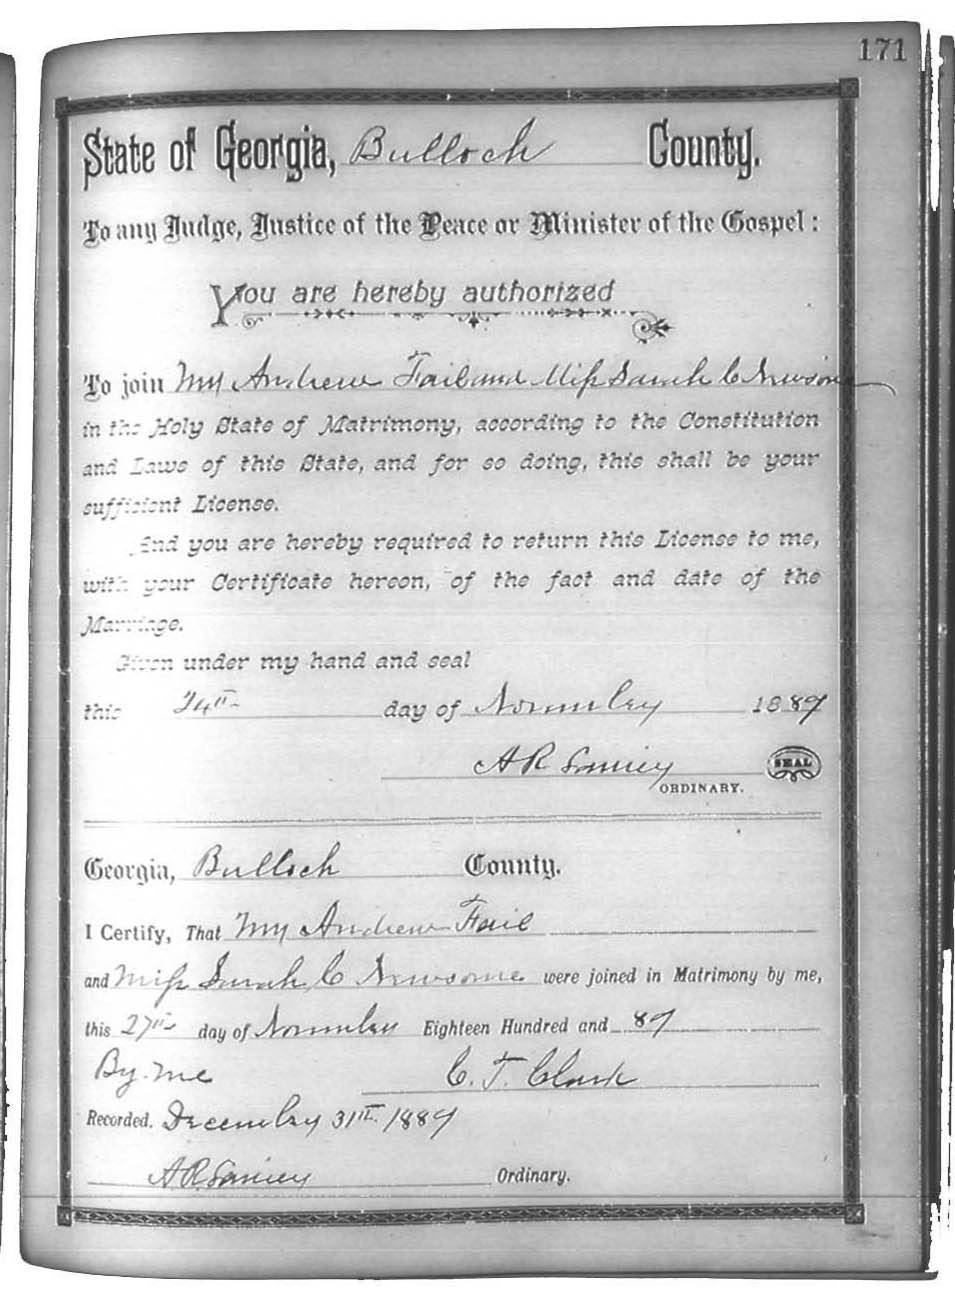 171
State of Georgia, Bulloch County.
To any Judge, Justice of the Peace or Minister of the Gospel:
You are hereby authorized
To join Mr Andrew Fail and Miss Sarah C Newsome
in the Holy State of Matrimony, according to the Constitution
and Laws of this State, and for so doing, this shall be your
sufficient License.
And you are hereby required to return this License to me,
with your Certificate hereon, of the fact and date of the
Marriage.
Given under my hand and seal
this 24th day of November 1889
A R Lanier SEAL
ORDINARY.
Georgia, Bulloch County.
I Certify, That Mr Andrew Fail
and Miss Sarah C Newsome were joined in Matrimony by me,
this 27th day of November Eighteen Hundred and 89
By me C. T. Clark
Recorded. December 31st 1889
A R Lanier Ordinary.